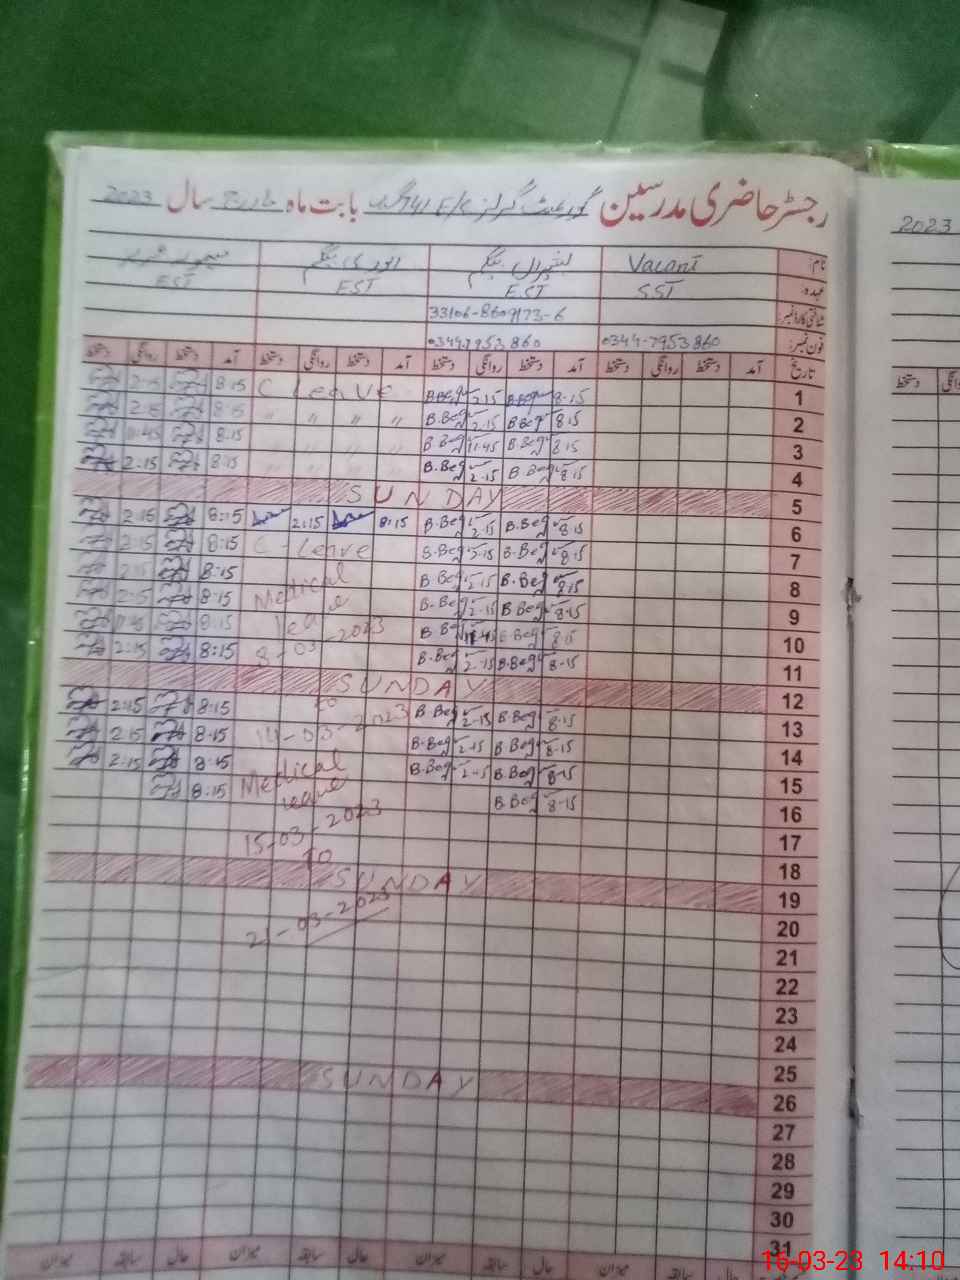 رجسٹر حاضری مدرسین گورنمنٹ گرلز E/S بابت ماہ مارچ سال 2023
نام: Vacant بیگم بیگم
عہدہ: SST EST EST EST
شناختی کارڈ نمبر: 33106-8609173-6
فون نمبر: 0344-7953860 0344-7953860
تاریخ آمد دستخط روانگی دستخط آمد دستخط روانگی دستخط آمد دستخط روانگی دستخط آمد دستخط روانگی دستخط
1 8-15 B.Beg 2-15 B.Beg C Leave 8:15 2:15
2 8-15 B.Beg 2-15 B.Beg " " " 8:15 2:15
3 8-15 B.Beg 11-45 B.Beg " " " 8:15 11:45
4 8-15 B.Beg 2-15 B.Beg " " " 8:15 2:15
5 SUNDAY
6 8-15 B.Beg 2-15 B.Beg 8:15 2:15 8:15 2:15
7 8-15 B.Beg 2-15 B.Beg C-Leave 8:15 2:15
8 8-15 B.Beg 2-15 B.Beg Medical 8:15 2:15
9 8-15 B.Beg 2-15 B.Beg leave 8:15 2:15
10 8-15 B.Beg 11-45 B.Beg 8-03-2023 8:15 11:45
11 8-15 B.Beg 2-15 B.Beg 8:15 2:15
12 SUNDAY
to
13 8-15 B.Beg 2-15 B.Beg 14-03-2023 8:15 2:15
14 8-15 B.Beg 2-15 B.Beg 8:15 2:15
15 8-15 B.Beg 2-15 B.Beg Medical 8:15 2:15
16 8-15 B.Beg leave 8:15
17 15-03-2023
18 to
19 SUNDAY
20 21-03-2023
21
22
23
24
25
26 SUNDAY
27
28
29
30
31
حال سابقہ میزان حال سابقہ میزان حال سابقہ میزان
2023
دستخط
16-03-23 14:10